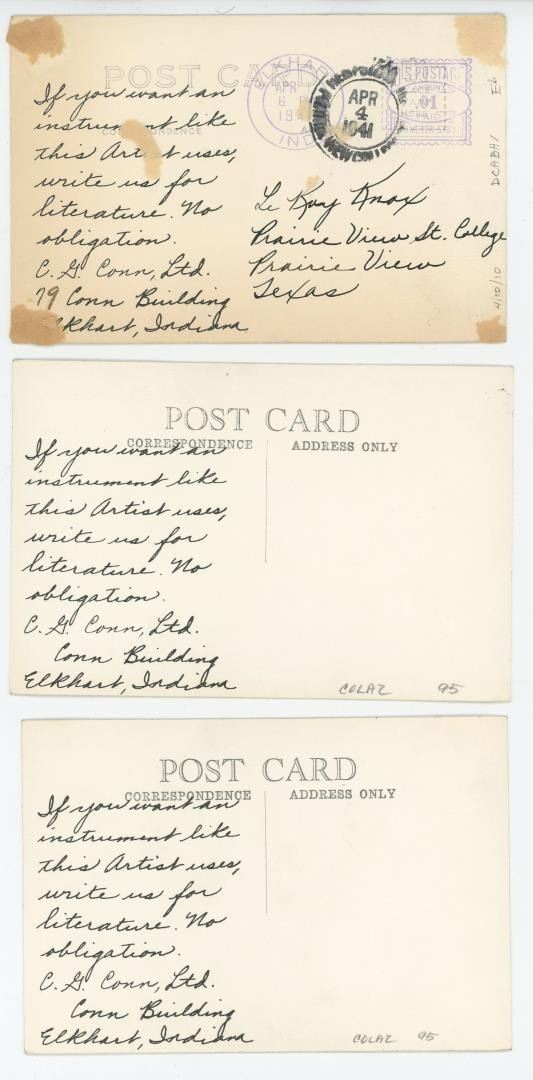 POST CARD
CORRESPONDENCE
If you want an
instrument like
this Artist uses,
write us for
literature. No
obligation.
C. G. Conn, Ltd.
79 Conn Building
Elkhart, Indiana
ELKHART
APR
IND
APR
4
1941
U.S. POSTAGE
01
Le Roy Knox
Prairie View St. College
Prairie View
Texas
DCABA/
4/10/10
POST CARD
CORRESPONDENCE
ADDRESS ONLY
If you want an
instrument like
this Artist uses,
write us for
literature. No
obligation.
C. G. Conn, Ltd.
Conn Building
Elkhart, Indiana
COLAZ 95
POST CARD
CORRESPONDENCE
ADDRESS ONLY
If you want an
instrument like
this Artist uses,
write us for
literature. No
obligation.
C. G. Conn, Ltd.
Conn Building
Elkhart, Indiana
COLAZ 95